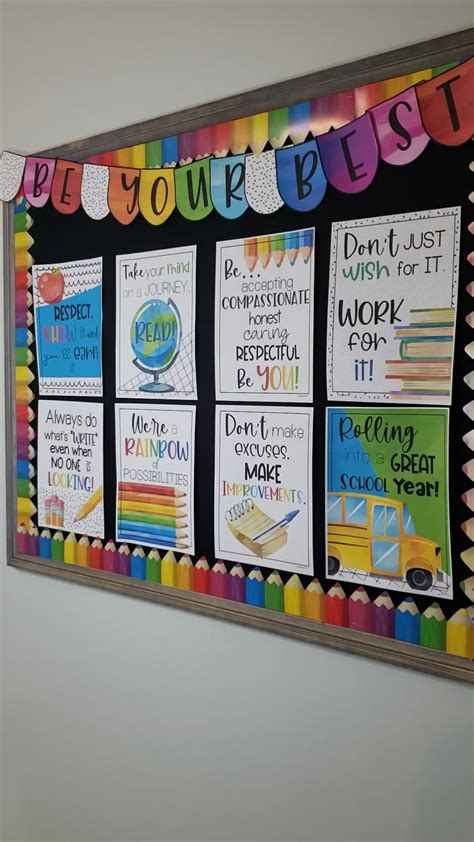 BE YOUR BEST
RESPECT.
SHOW it and
you'll earn
it.
Take your mind
on a JOURNEY.
READ!
Be...
accepting
COMPASSIONATE
honest
caring
RESPECTFUL
Be YOU!
Don't JUST
wish for IT.
WORK
for
iT!
Always do
what's "WRITE"
even when
NO ONE is
LOOKING!
We're a
RAINBOW
of
POSSIBILITIES
Don't make
excuses,
MAKE
IMPROVEMENTS.
Rolling
into a
GREAT
SCHOOL YEAR!